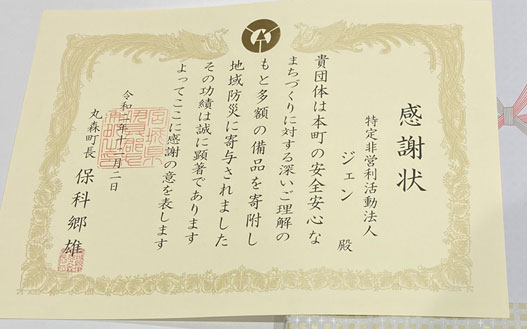 感謝状
特定非営利活動法人
ジェン 殿
貴団体は本町の安全安心な
まちづくりに対する深いご理解の
もと多額の備品を寄附し
地域防災に寄与されました
その功績は誠に顕著であります
よってここに感謝の意を表します
令和二年十二月二日
丸森町長 保科郷雄